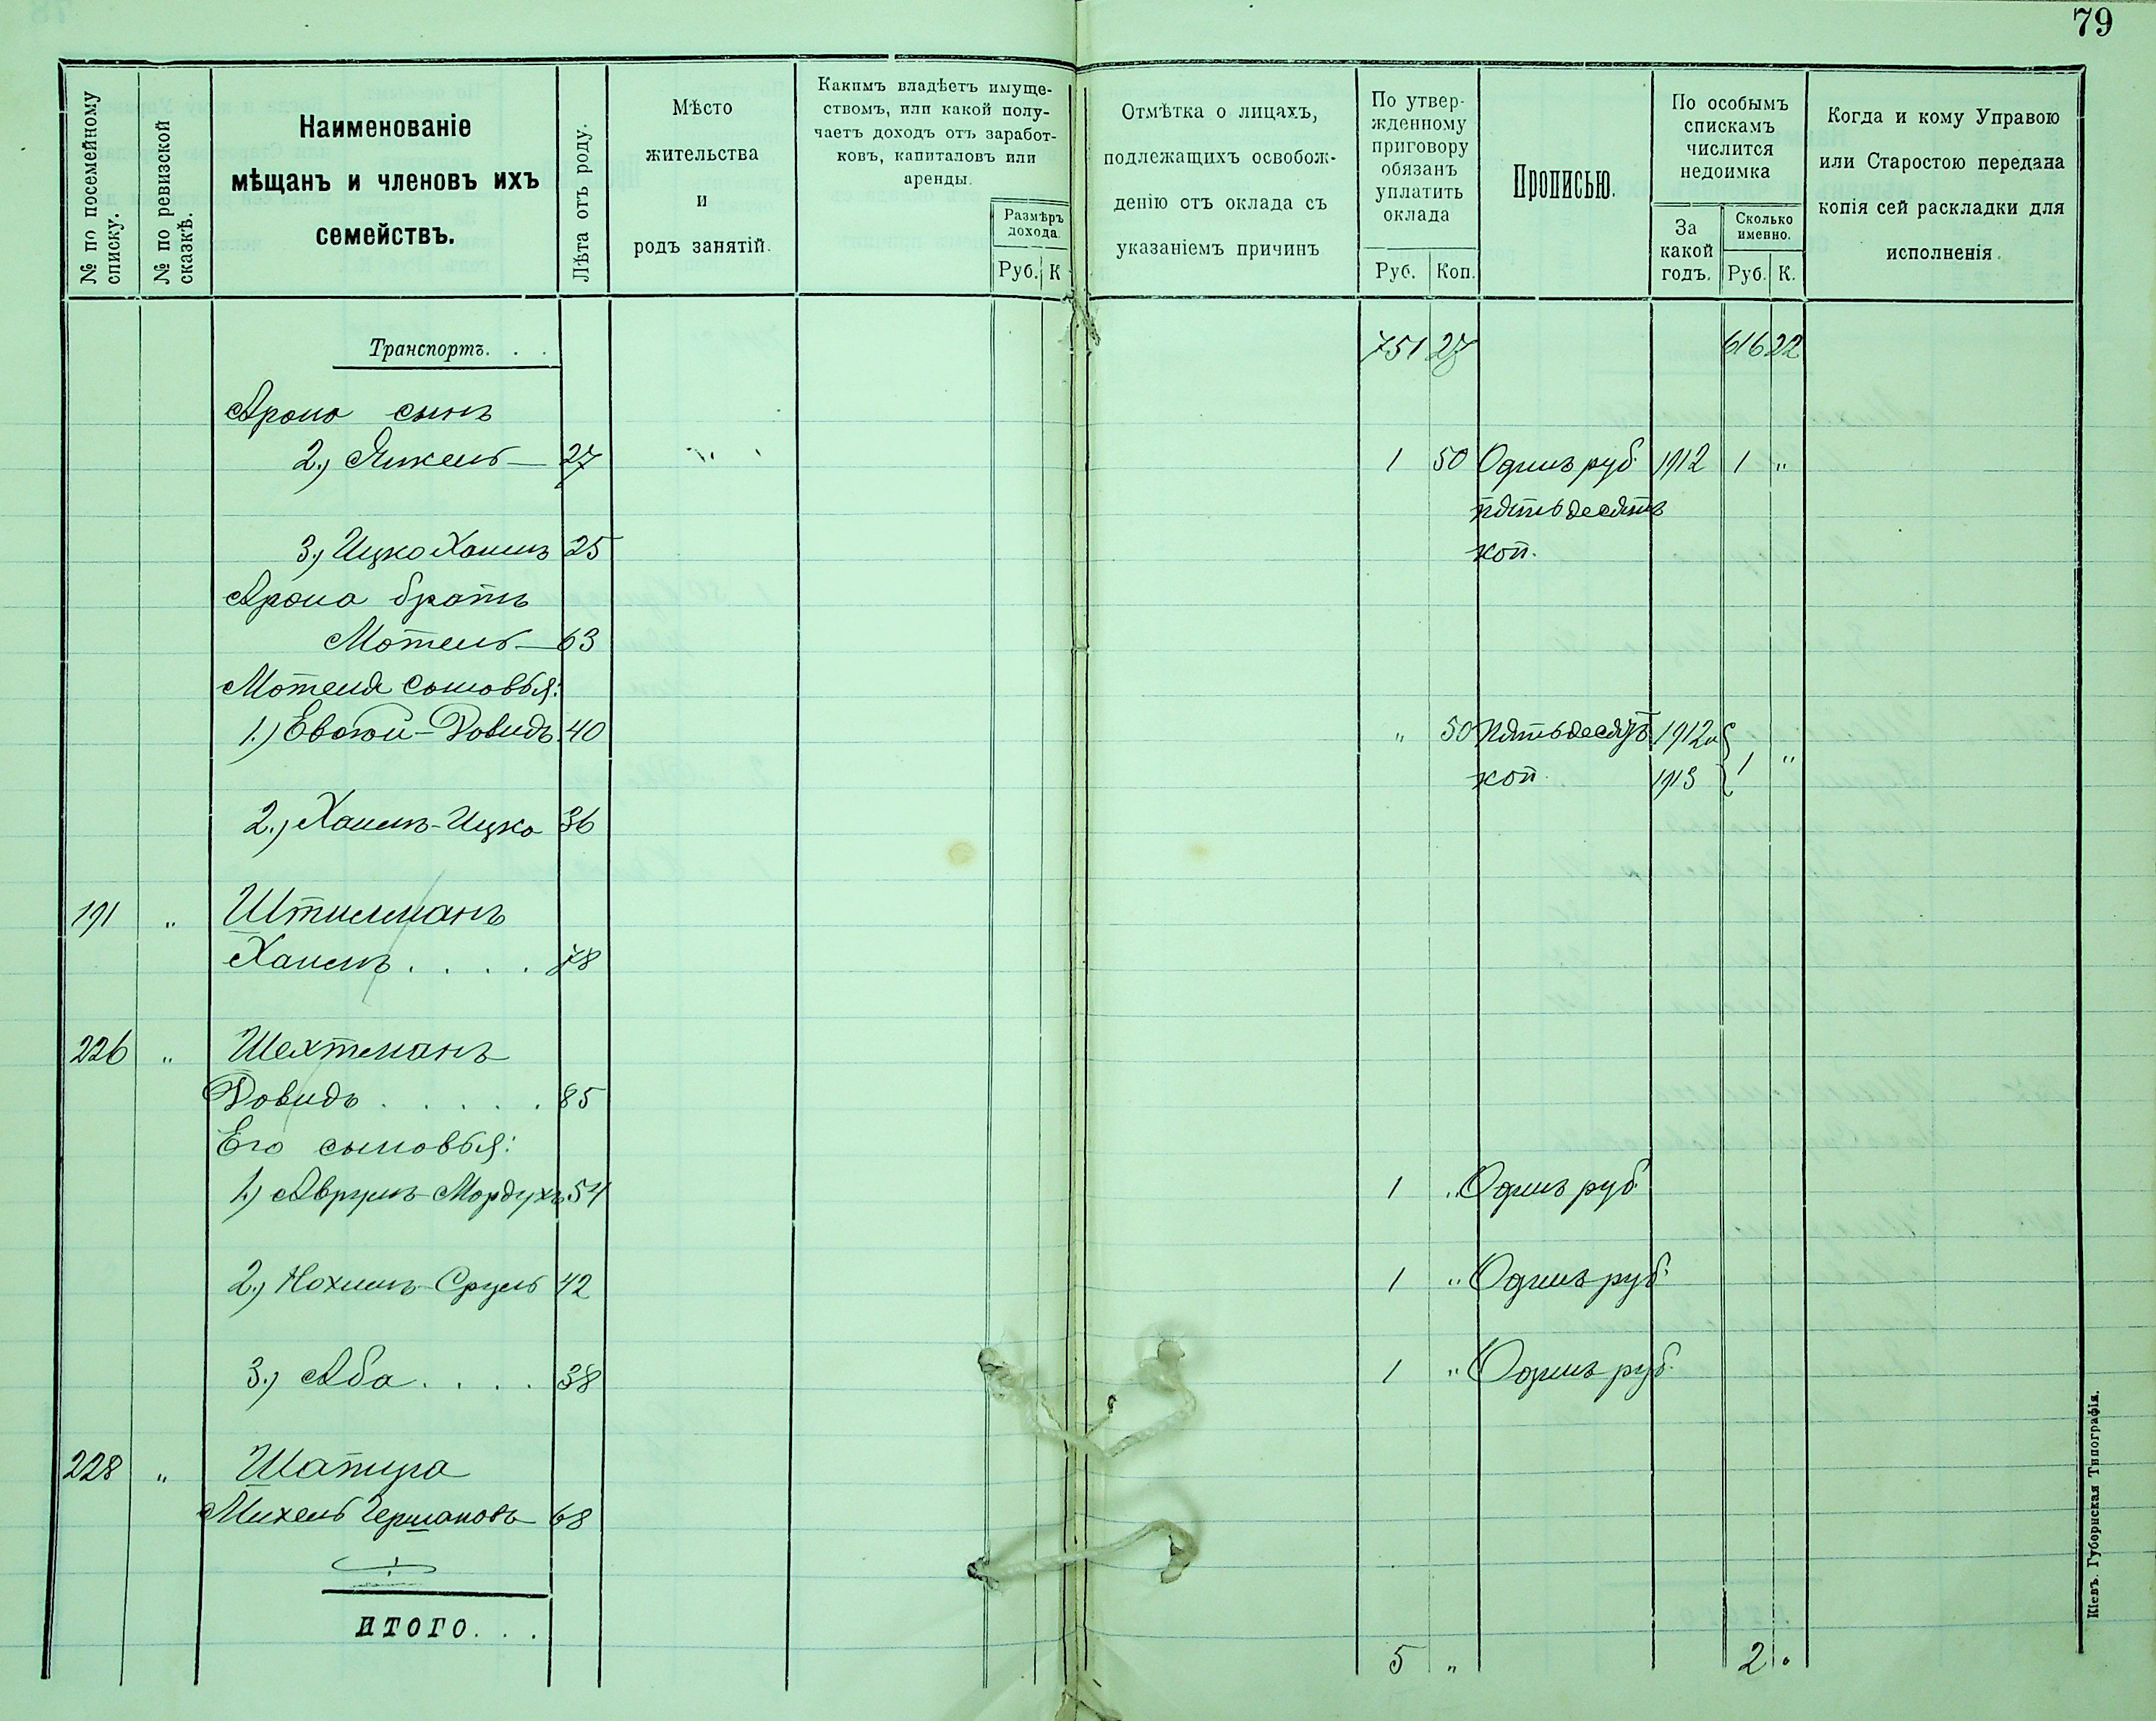 79
№ по посемейному списку.
№ по ревизской сказкѣ.
Наименованіе
мѣщанъ и членовъ ихъ
семействъ.
Лѣта отъ роду.
Мѣсто
жительства
и
родъ занятій.
Какимъ владѣетъ имуще-
ствомъ, или какой полу-
чаетъ доходъ отъ заработ-
ковъ, капиталовъ или
аренды.
Размѣръ
дохода.
Руб. К
Отмѣтка о лицахъ,
подлежащихъ освобож-
денію отъ оклада съ
указаніемъ причинъ
По утвер-
жденному
приговору
обязанъ
уплатить
оклада
Руб. Коп.
Прописью.
По особымъ
спискамъ
числится
недоимка
За
какой
годъ.
Сколько
именно.
Руб. К.
Когда и кому Управою
или Старостою передана
копія сей раскладки для
исполненія.
Транспортъ. . . 751 27 616 22
Арона сынъ
2.) Янкель — 27 " " 1 50 Одинъ руб. 1912 1 "
пятьдесятъ
3.) Ицко Хаимъ 25 коп.
Арона братъ
Мотель — 63
Мотеля сыновья:
1.) Евсей-Довидъ 40 " 50 Пятьдесятъ 1912 и
коп. 1913 1 "
2.) Хаимъ-Ицко 36
191 " Штилманъ
Хаимъ . . . . 78
226 " Шехтманъ
Довидъ . . . . . 85
Его сыновья:
1.) Аврумъ-Мордухъ 54 1 " Одинъ руб.
2.) Нохимъ-Сруль 42 1 " Одинъ руб.
3.) Аба . . . . 38 1 " Одинъ руб.
228 " Шапира
Михель Гершоновъ 68
ИТОГО. . . 5 " 2 "
Кіевъ. Губернская Типографія.